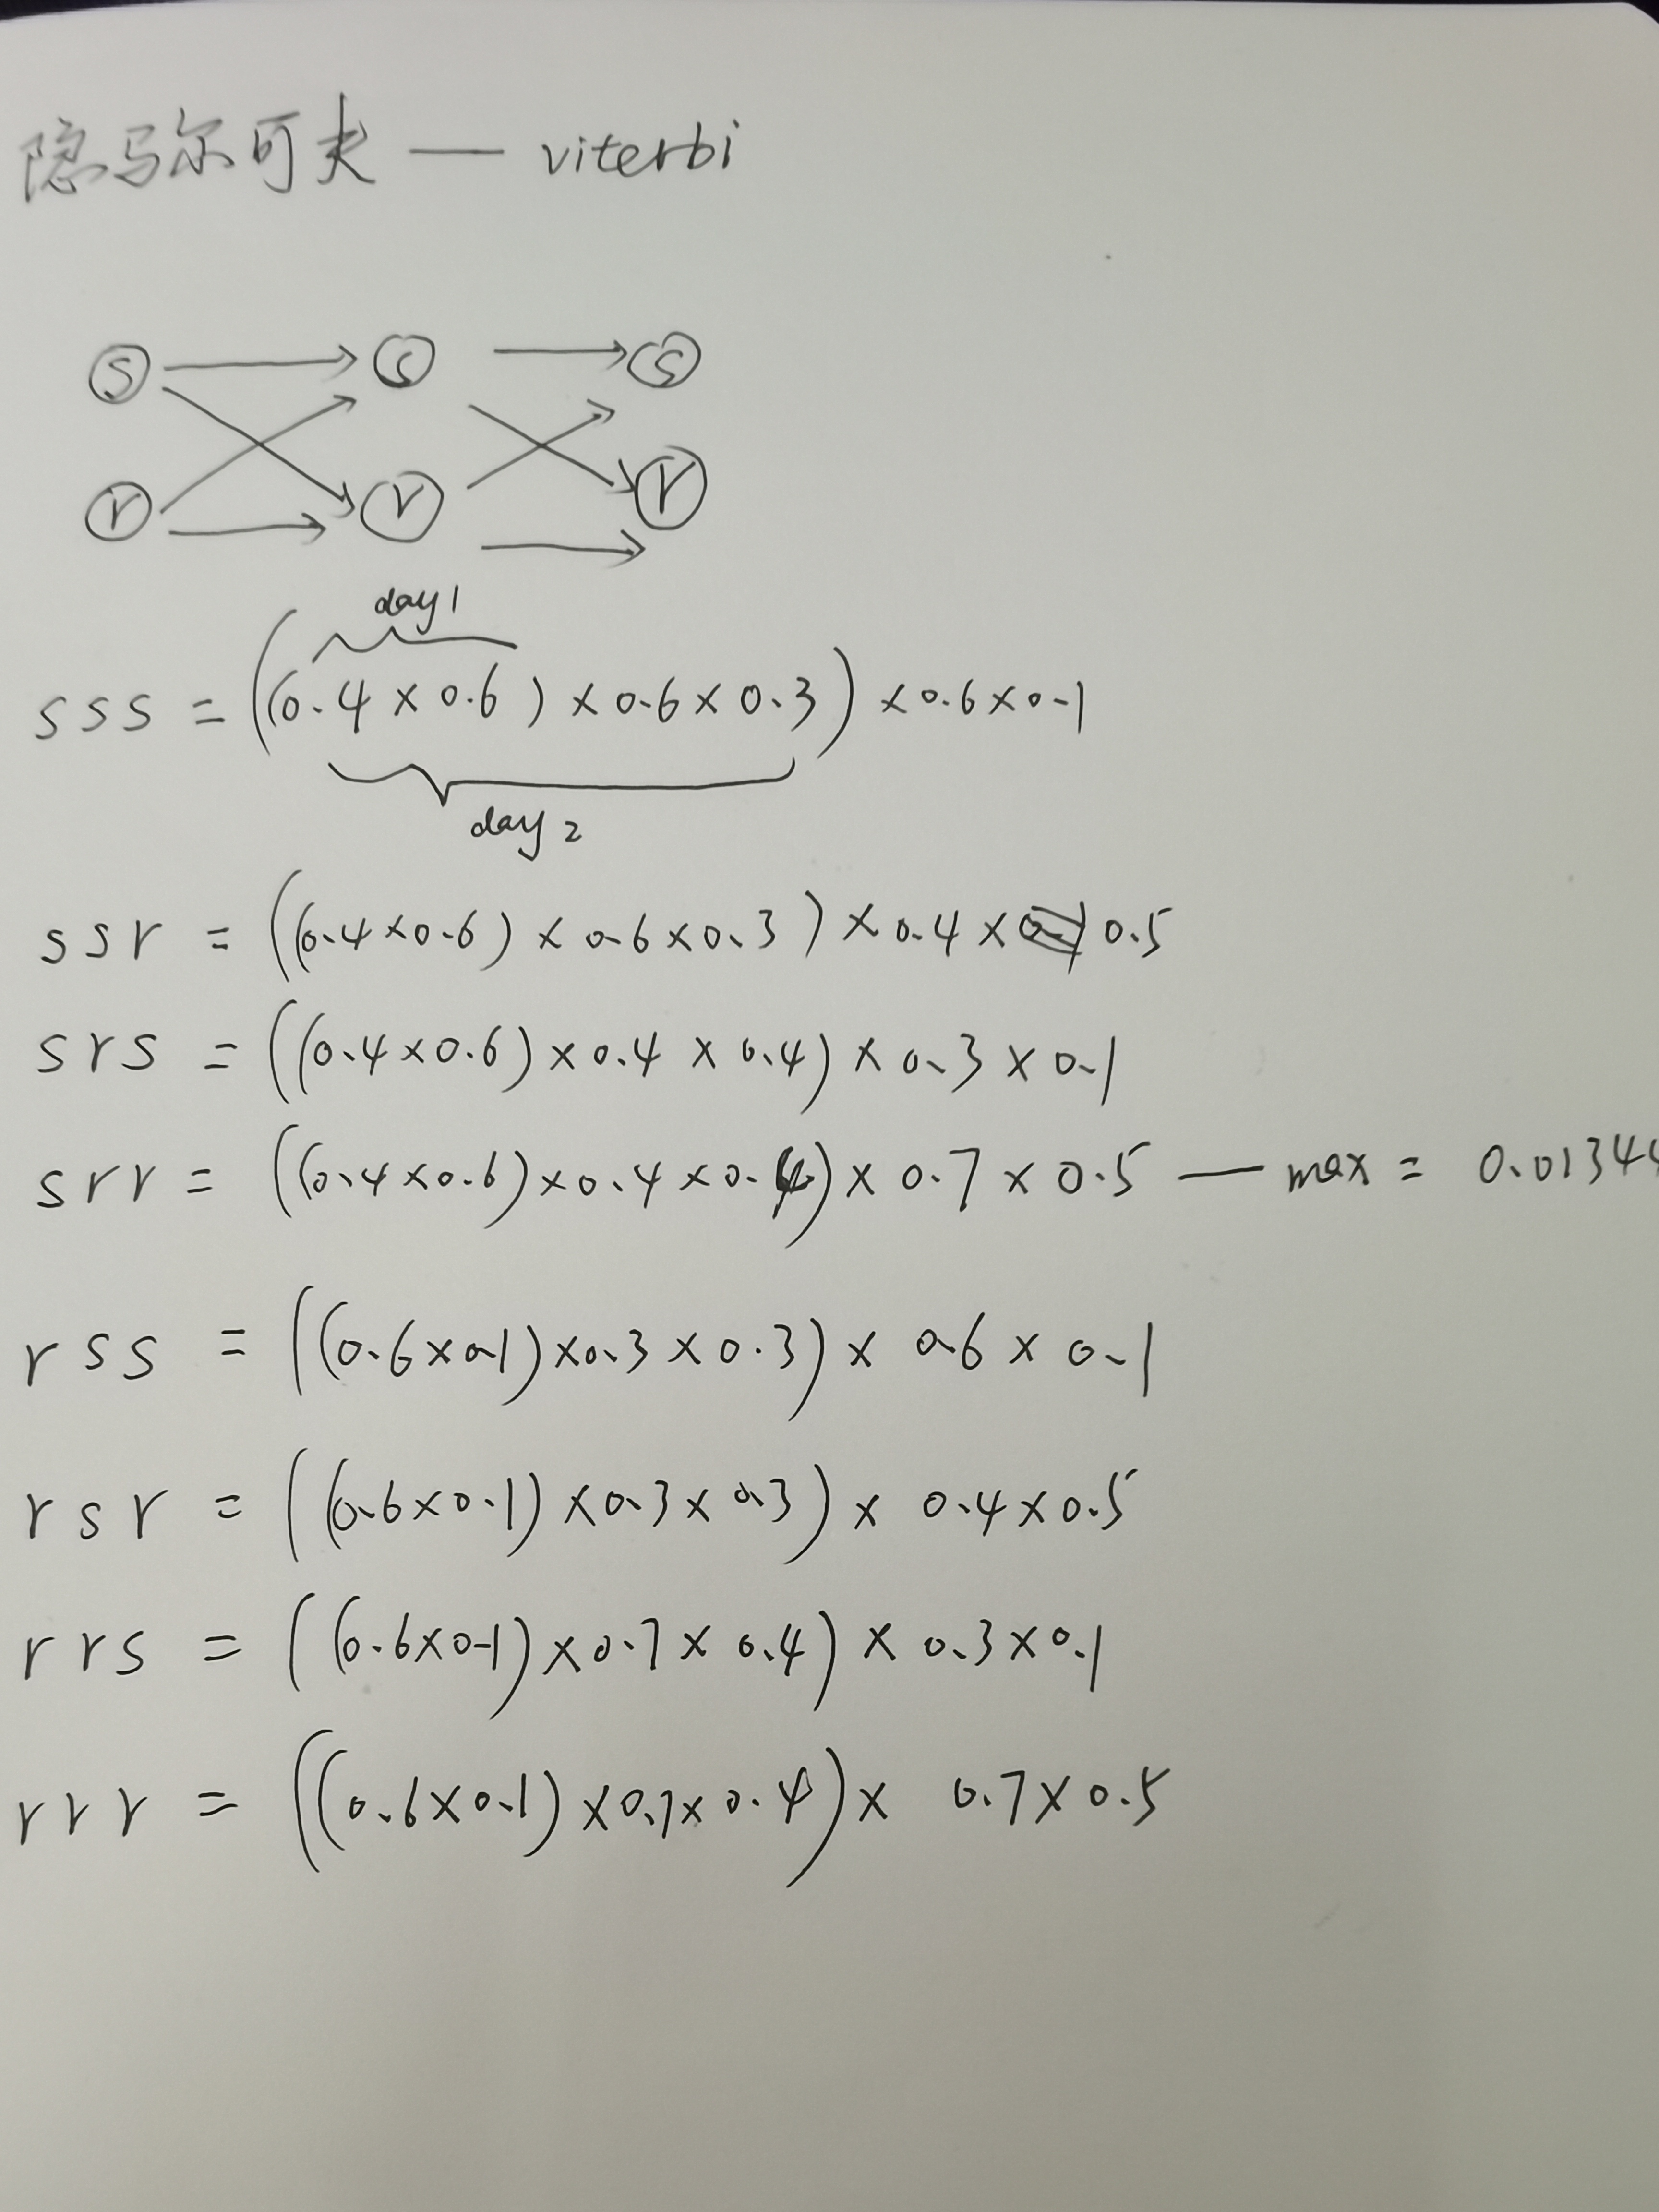 隐马尔可夫 — viterbi
s → s → s
r → r → r
day 1
sss = ((0.4 × 0.6) × 0.6 × 0.3) × 0.6 × 0.1
day 2
ssr = ((0.4 × 0.6) × 0.6 × 0.3) × 0.4 × 0.5
srs = ((0.4 × 0.6) × 0.4 × 0.4) × 0.3 × 0.1
srr = ((0.4 × 0.6) × 0.4 × 0.4) × 0.7 × 0.5 — max = 0.01344
rss = ((0.6 × 0.1) × 0.3 × 0.3) × 0.6 × 0.1
rsr = ((0.6 × 0.1) × 0.3 × 0.3) × 0.4 × 0.5
rrs = ((0.6 × 0.1) × 0.7 × 0.4) × 0.3 × 0.1
rrr = ((0.6 × 0.1) × 0.7 × 0.4) × 0.7 × 0.5